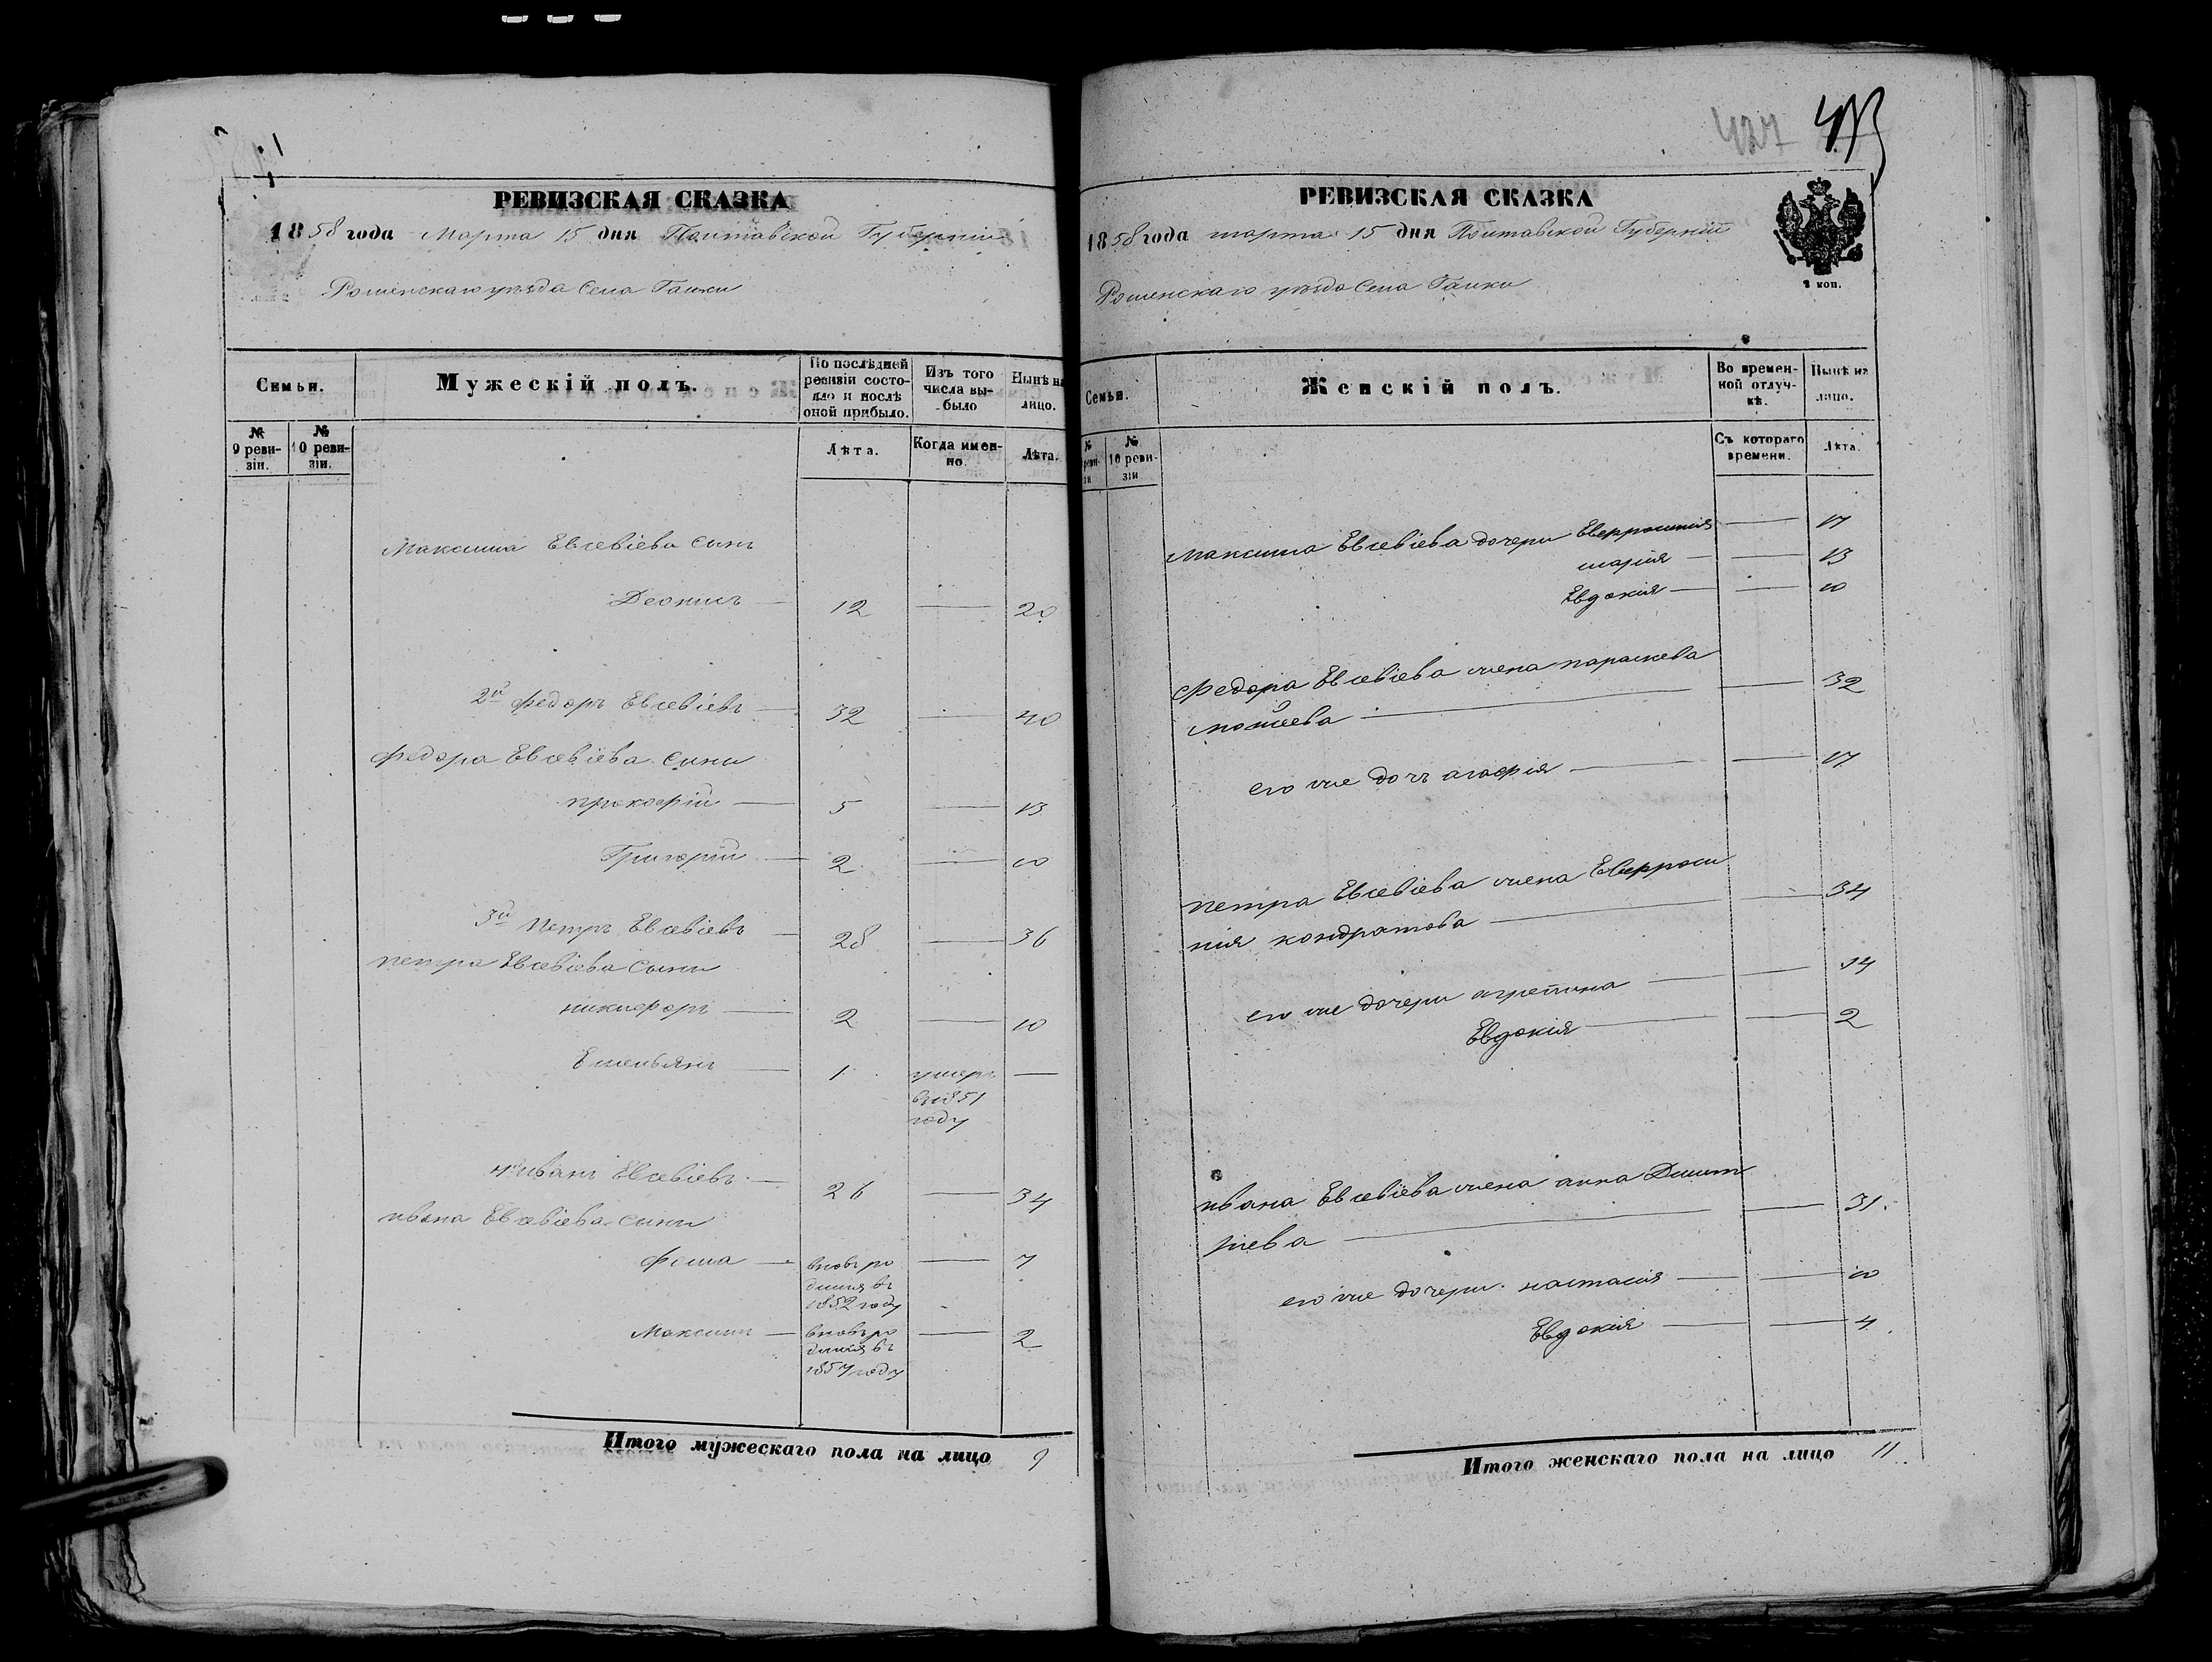 427
РЕВИЗСКАЯ СКАЗКА
1858 года Марта 15 дня Полтавской Губерніи
Роменскаго уѣзда Села Галки
Семьи.
Мужескій полъ.
По послѣдней ревизіи состояло и послѣ оной прибыло.
Изъ того числа выбыло
Нынѣ на лицо.
№ 9 ревизіи.
№ 10 ревизіи.
Лѣта.
Когда именно.
Лѣта.
Максима Евсевіева сынъ
Деонисъ — 12 — 20
2й Федоръ Евсевіевъ — 32 — 40
Федора Евсевіева сини
прокофій — 5 — 13
Григорій — 2 — 10
3й Петръ Евсевіевъ — 28 — 36
петра Евсевіева сыни
никифоръ — 2 — 10
Емельянъ — 1 умеръ —
въ 1851
году
4й Иванъ Евсевіевъ — 26 — 34
ивана Евсевіева сини
Фома — вновь ро — 7
дился въ
1852 году
Максимъ — вновь ро — 2
дился въ
1857 году
Итого мужескаго пола на лицо 9
РЕВИЗСКАЯ СКАЗКА
1858 года марта 15 дня Полтавской Губерніи
Роменскаго уѣзда Села Галки
2 коп.
Семьи.
Женскій полъ.
Во временной отлучкѣ.
Нынѣ на лицо.
№ 10 ревизіи
Съ котораго времени.
Лѣта.
Максима Евсевіева дочери Евфросинія — 17
марія — — 13
Евдокія — — 10
Федора Евсевіева жена параскева
мойсеева — — 32
его же дочь агафія — — 17
петра Евсевіева жена Евфроси
нія кондратова — — 34
его же дочери агрепина — — 14
Евдокія — — 2
ивана Евсевіева жена анна Дмит
риева — — 31
его же дочери настасія — — 10
Евдокія — — 4
Итого женскаго пола на лицо 11